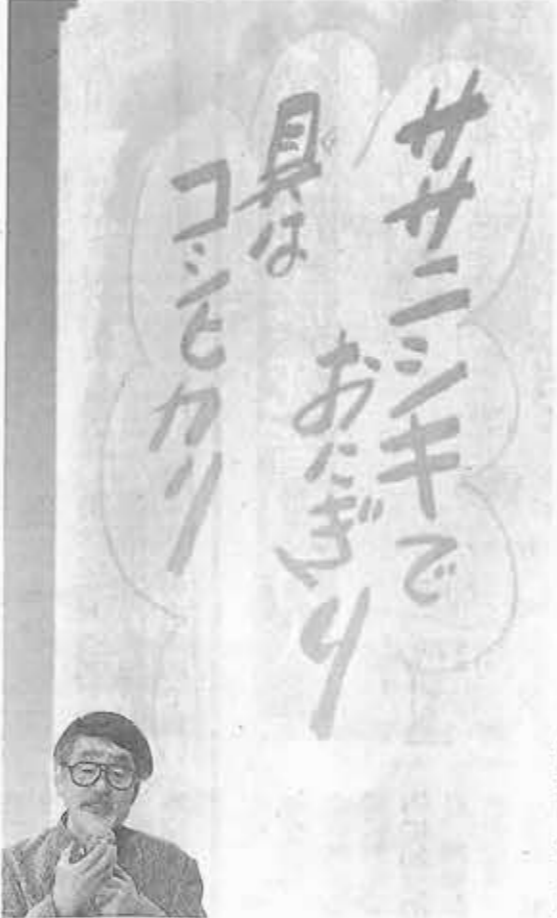 ササニシキで
おにぎり
具は
コシヒカリ